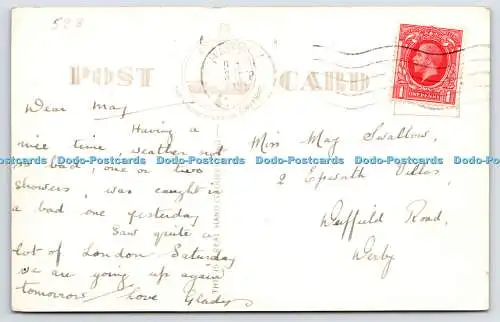 528
POST CARD
Dear May
Having a
nice time, weather not
so bad, one or two
showers, was caught in
a bad one yesterday
Saw quite a
lot of London Saturday
we are going up again
tomorrow, love Gladys
Miss May Swallow,
2 Epworth Villas,
Duffield Road,
Derby
1 ONE PENNY 1
Dodo-Postcards Dodo-Postcards Dodo-Postcards Dodo-Postcards Dodo-Postcards